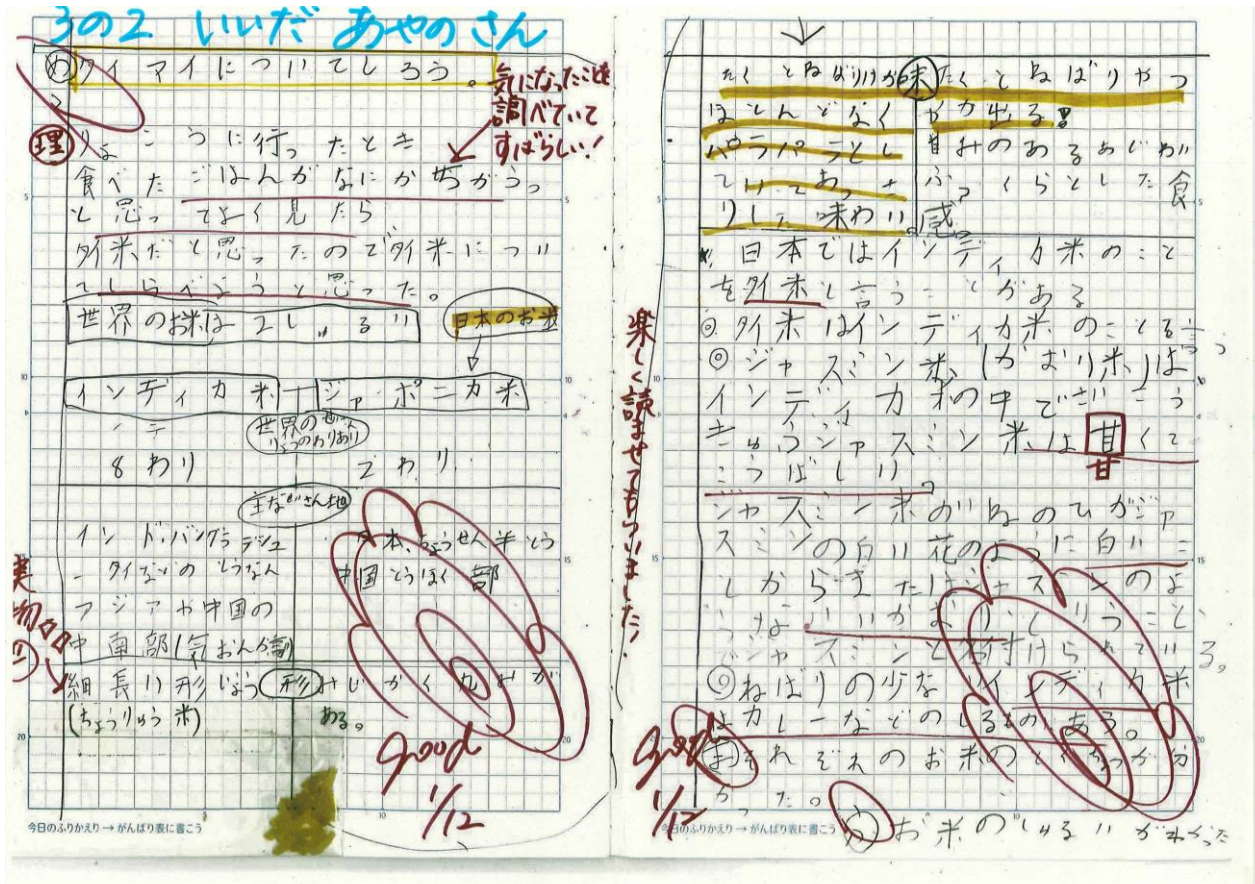 3の2 いいだ あやの さん
め タイマイについてしろう。
気になったことを
調べていて
すばらしい!
理
りょこうに行ったとき
食べたごはんがなにかちがうっ
と思ってよく見たら
タイ米だと思ったのでタイ米につい
てしらべようと思った。
世界のお米は2しゅるい
日本のお米
インディカ米
ジャポニカ米
世界の
8わり
2わり
主なさん地
インド・バングラデシュ
タイなどのとうなん
アジアや中国の
中南部
日本、ちょうせん半とう
中国とうほく部
細長い形じょう
(ちょうりゅう米)
形
みじかく丸みが
ある。
good
1/12
楽しく読ませてもらいました!
味
たくとねばりけが
ほとんどなく
パラパラとし
ていてあっさ
りした味わい。
たくとねばりやつ
やが出る!
甘みのあるあじわい
ふっくらとした食
感。
日本ではインディカ米のこと
をタイ米と言うことがある
◎タイ米はインディカ米のこと
言う
◎ジャスミン米(かおり米)は
インディカ米の中でさいこう
きゅうジャスミン米は甘くて
甘
こうばしい。
ジャスミン米のいねのひがジャ
スミンの白い花のように白いこ
としからまたはジャスミンのよ
うなよいかおりということ
でジャスミンと名付けられてい
る。
◎ねばりの少ないインディカ米
はカレーなどのしるものにあう。
ま それぞれのお米のとくちょうが分
かった。
good
1/12
お米のしゅるいがわかった
今日のふりかえり→がんばり表に書こう
今日のふりかえり→がんばり表に書こう